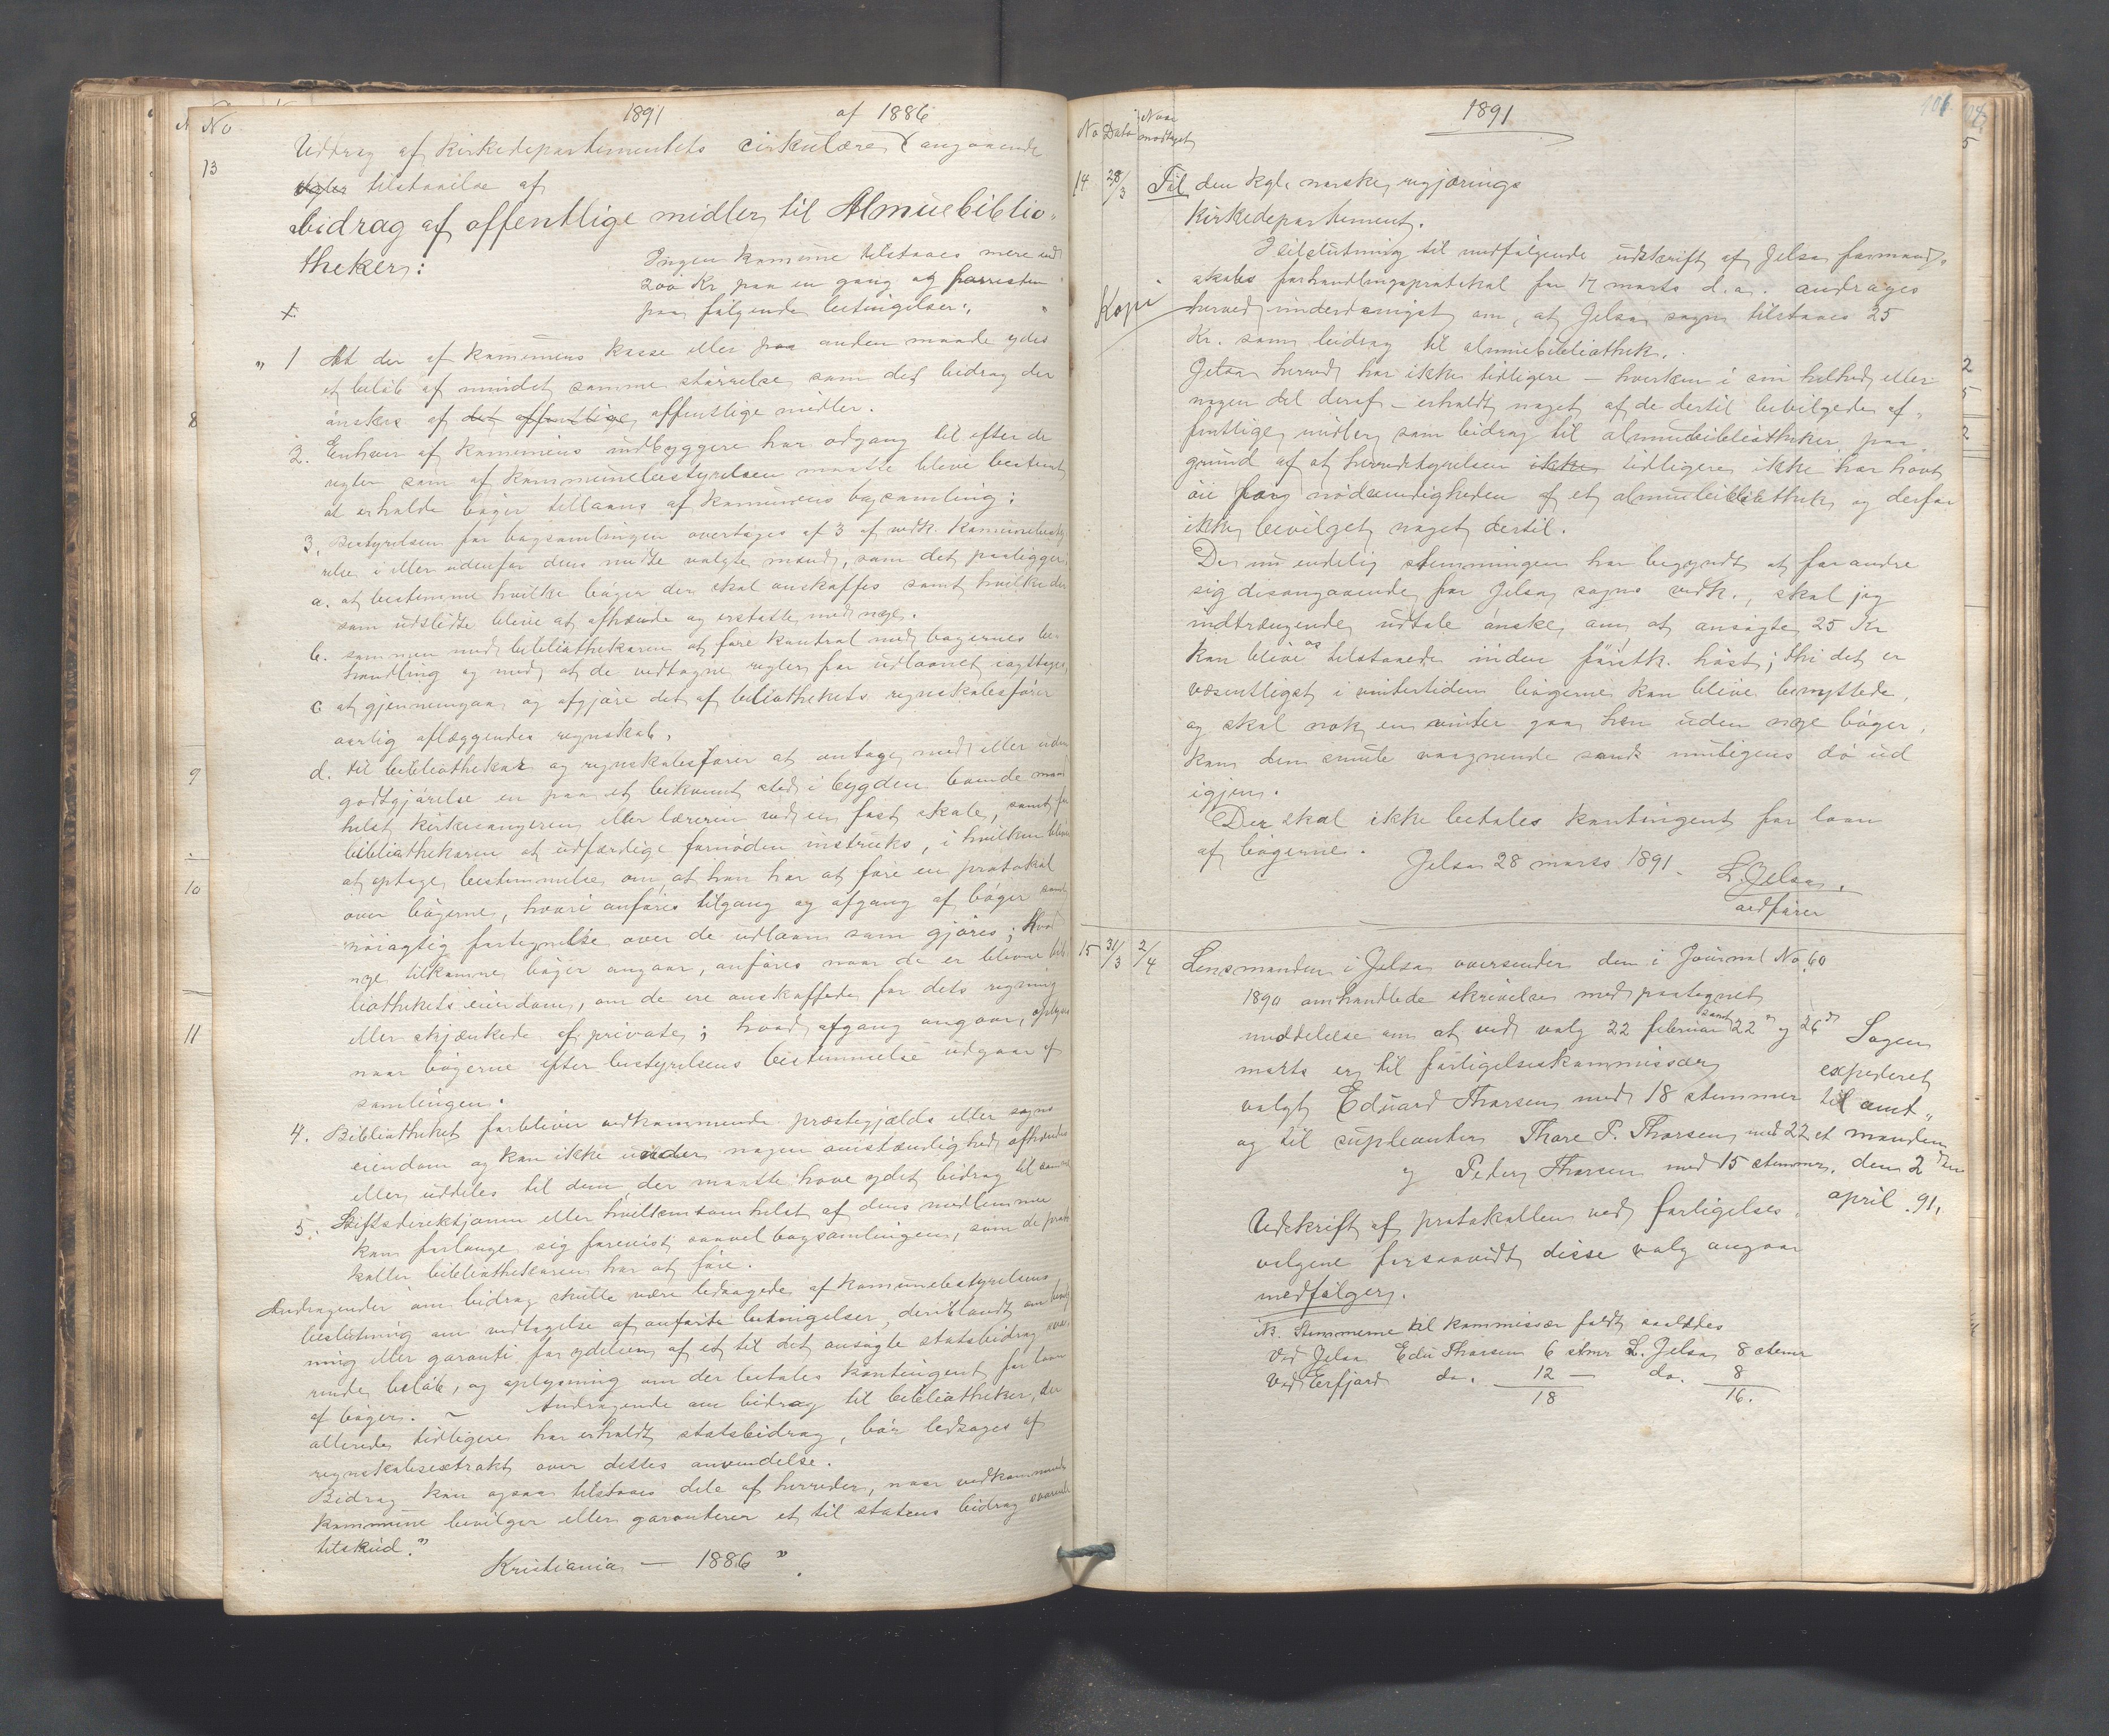 No
1891
af 1886
13
Uddrag af kirkedepartementets cirkulære angaaende
regler tilstaaelse af
bidrag af offentlige midler til Almuebiblio-
theker:
Ingen kommune tilstaaes mere end
200 Kr paa en gang og forresten
paa følgende betingelser:
" 1 At der af kommunens kasse eller paa anden maade ydes
et beløb af mindst samme størrelse som det bidrag der
ønskes af det offentlige offentlige midler.
2. Enhver af kommunens indbyggere har adgang til efter de
regler som af kommunebestyrelsen maatte blive bestemt
at erholde bøger tillaans af kommunens bogsamling:
3. Bestyrelsen for bogsamlingen overtages af 3 af vedk. kommunebesty-
relse i eller udenfor dens midte valgte mænd, som det paaligger:
a. at bestemme hvilke bøger der skal anskaffes samt hvilke der
som udslidte blive at afhænde og erstatte med nye.
b. sammen med bibliothekaren at føre kontrol med bøgernes be-
handling og med at de vedtagne regler for udlaanet iagttages,
c at gjennemgaa og afgjøre det af bibliothekets regnskabsfører
aarlig aflæggende regnskab,
d. til bibliothekar og regnskabsfører at antage med eller uden
godtgjørelse en paa et bekvemt sted i bygden boende mand
helst kirkesangeren eller læreren ved en fast skole, samt for
bibliothekaren at udfærdige fornøden instruks, i hvilken bliver
at optage bestemmelse om at han har at føre en protokol
over bøgerne, hvori anføres tilgang og afgang af bøger samt
nøiagtig fortegnelse over de udlaan som gjøres; Hvad
nye tilkomne bøger angaar, anføres naar de er blevne bib-
liothekets eiendom, om de ere anskaffede for dets regning
eller skjænkede af private; hvad afgang angaar, oplyses
naar bøgerne efter bestyrelsens bestemmelse udgaar af
samlingen.
4. Bibliotheket forbliver vedkommende præstegjælds eller sogns
eiendom og kan ikke under nogen omstændighed afhændes
eller uddeles til dem der maatte have ydet bidrag til samme
5. Stiftsdirektjonen eller hvilkensomhelst af dens medlemmer
kan forlange sig forevist saavel bogsamlingen, som de proto-
koller bibliothekaren har at føre.
Andragender om bidrag skulle være ledsagede af kommunebestyrelsens
beslutning om vedtagelse af anførte betingelser, deriblandt om bevilg-
ning eller garanti for ydelsen af et til det ansøgte statsbidrag sva-
rende beløb, og oplysning om der betales kontingent for laan
af bøger. — Andragende om bidrag til bibliotheker, der
allerede tidligere har erholdt statsbidrag, bør ledsages af
regnskabsextrakt over dettes anvendelse.
Bidrag kan ogsaa tilstaaes dele af herreder, naar vedkommende
kommune bevilger eller garanterer et til statens bidrag svarende
tilskud."
Kristiania — 1886 "
8
9
10
11
No Dato Naar modtaget
1891
101
14 28/3 Til den kgl. norske regjerings
Kirkedepartement.
I tilslutning til medfølgende udskrift af Jelsa formand-
skabs forhandlingsprotokol for 17 marts d.a. andrages
Kopi
herved underdanigst om, at Jelsa sogn tilstaaes 25
Kr. som bidrag til almuebibliothek.
Jelsa herred har ikke tidligere — hverken i sin helhed eller
nogen del deraf — erholdt noget af de dertil bevilgede of-
fentlige midler som bidrag til almuebibliotheker paa
grund af at herredstyrelsen ikke tidligere ikke har havt
øie for nødvendigheden af et almuebibliothek og derfor
ikke bevilget noget dertil.
Da nu endelig stemningen har begyndt at forandre
sig desangaaende for Jelsa sogns vedk., skal jeg
indtrængende udtale ønske om at ansøgte 25 Kr
kan blive os tilstaaede inden førstk. høst; thi det er
væsentligst i vintertiden bøgerne kan blive benyttede,
og skal nok en vinter gaa hen uden nye bøger,
kan den smule vaagnende sands muligens dø ud
igjen.
Der skal ikke betales kontingent for laan
af bøgerne.
Jelsa 28 marts 1891.
L. Jelsa.
ordfører
15 31/3 2/4 Lensmanden i Jelsa oversender den i Journal No. 60
1890 omhandlede skrivelse med paategnet
meddelelse om at ved valg 22 februar samt 22de og 26de
marts er til forligelseskommissær
valgt Eduard Thorsen med 18 stemmer
og til supleanter Thore P. Thorsen med 22
og Peder Thorsen med 15 stemmer.
Udskrift af protokollen ved forligelses-
valgene forsaavidt disse valg angaar
medfølger.
Sagen
expederet
til amt-
manden
den 2den
april 91.
NB. Stemmerne til kommissær faldt saaledes
Ved Jelsa Edu Thorsen 6 stmr L. Jelsa 8 stemr
Ved Erfjord do. 12 — do. 8
18 16.